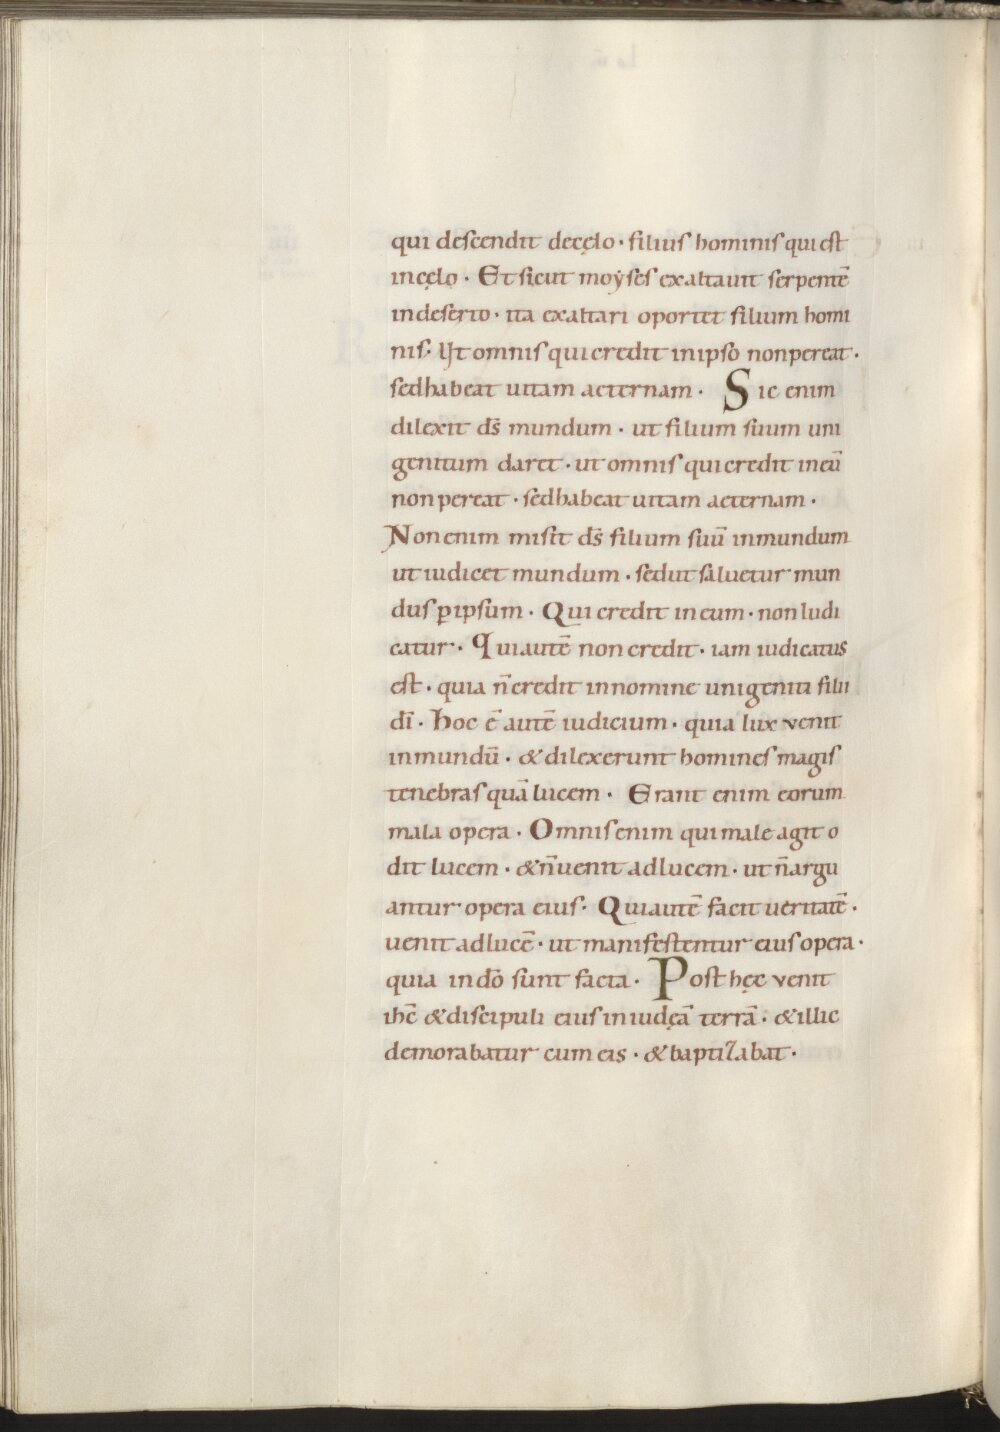 qui descendit decęlo · filius hominis qui est
incęlo · Et sicut moẏses exaltauit serpentē
indeserto · ita exaltari oportet filium homi
nis · Ut omnis qui credit inipso nonpereat ·
sedhabeat uitam aeternam · Sic enim
dilexit ds̄ mundum · ut filium suum uni
genitum daret · ut omnis qui credit ineū
nonpereat · sedhabeat uitam aeternam ·
Nonenim misit ds̄ filium suū inmundum
ut iudicet mundum · sedut saluetur mun
dus ꝑipsum · Qui credit ineum · non iudi
catur · Qui autē non credit · iam iudicatus
est · quia n̄ credit innomine unigeniti filii
dī · Hoc ē autē iudicium · quia lux venit
inmundū · & dilexerunt homines magis
tenebras quā lucem · Erant enim eorum
mala opera · Omnis enim qui male agit o
dit lucem · & n̄ uenit adlucem · ut n̄ argu
antur opera eius · Qui autē facit ueritatē ·
uenit adlucē · ut manifestentur eius opera ·
quia indō sunt facta · Post hęc venit
ihc̄ & discipuli eius iniudęā terrā · & illic
demorabatur cum eis · & baptizabat ·